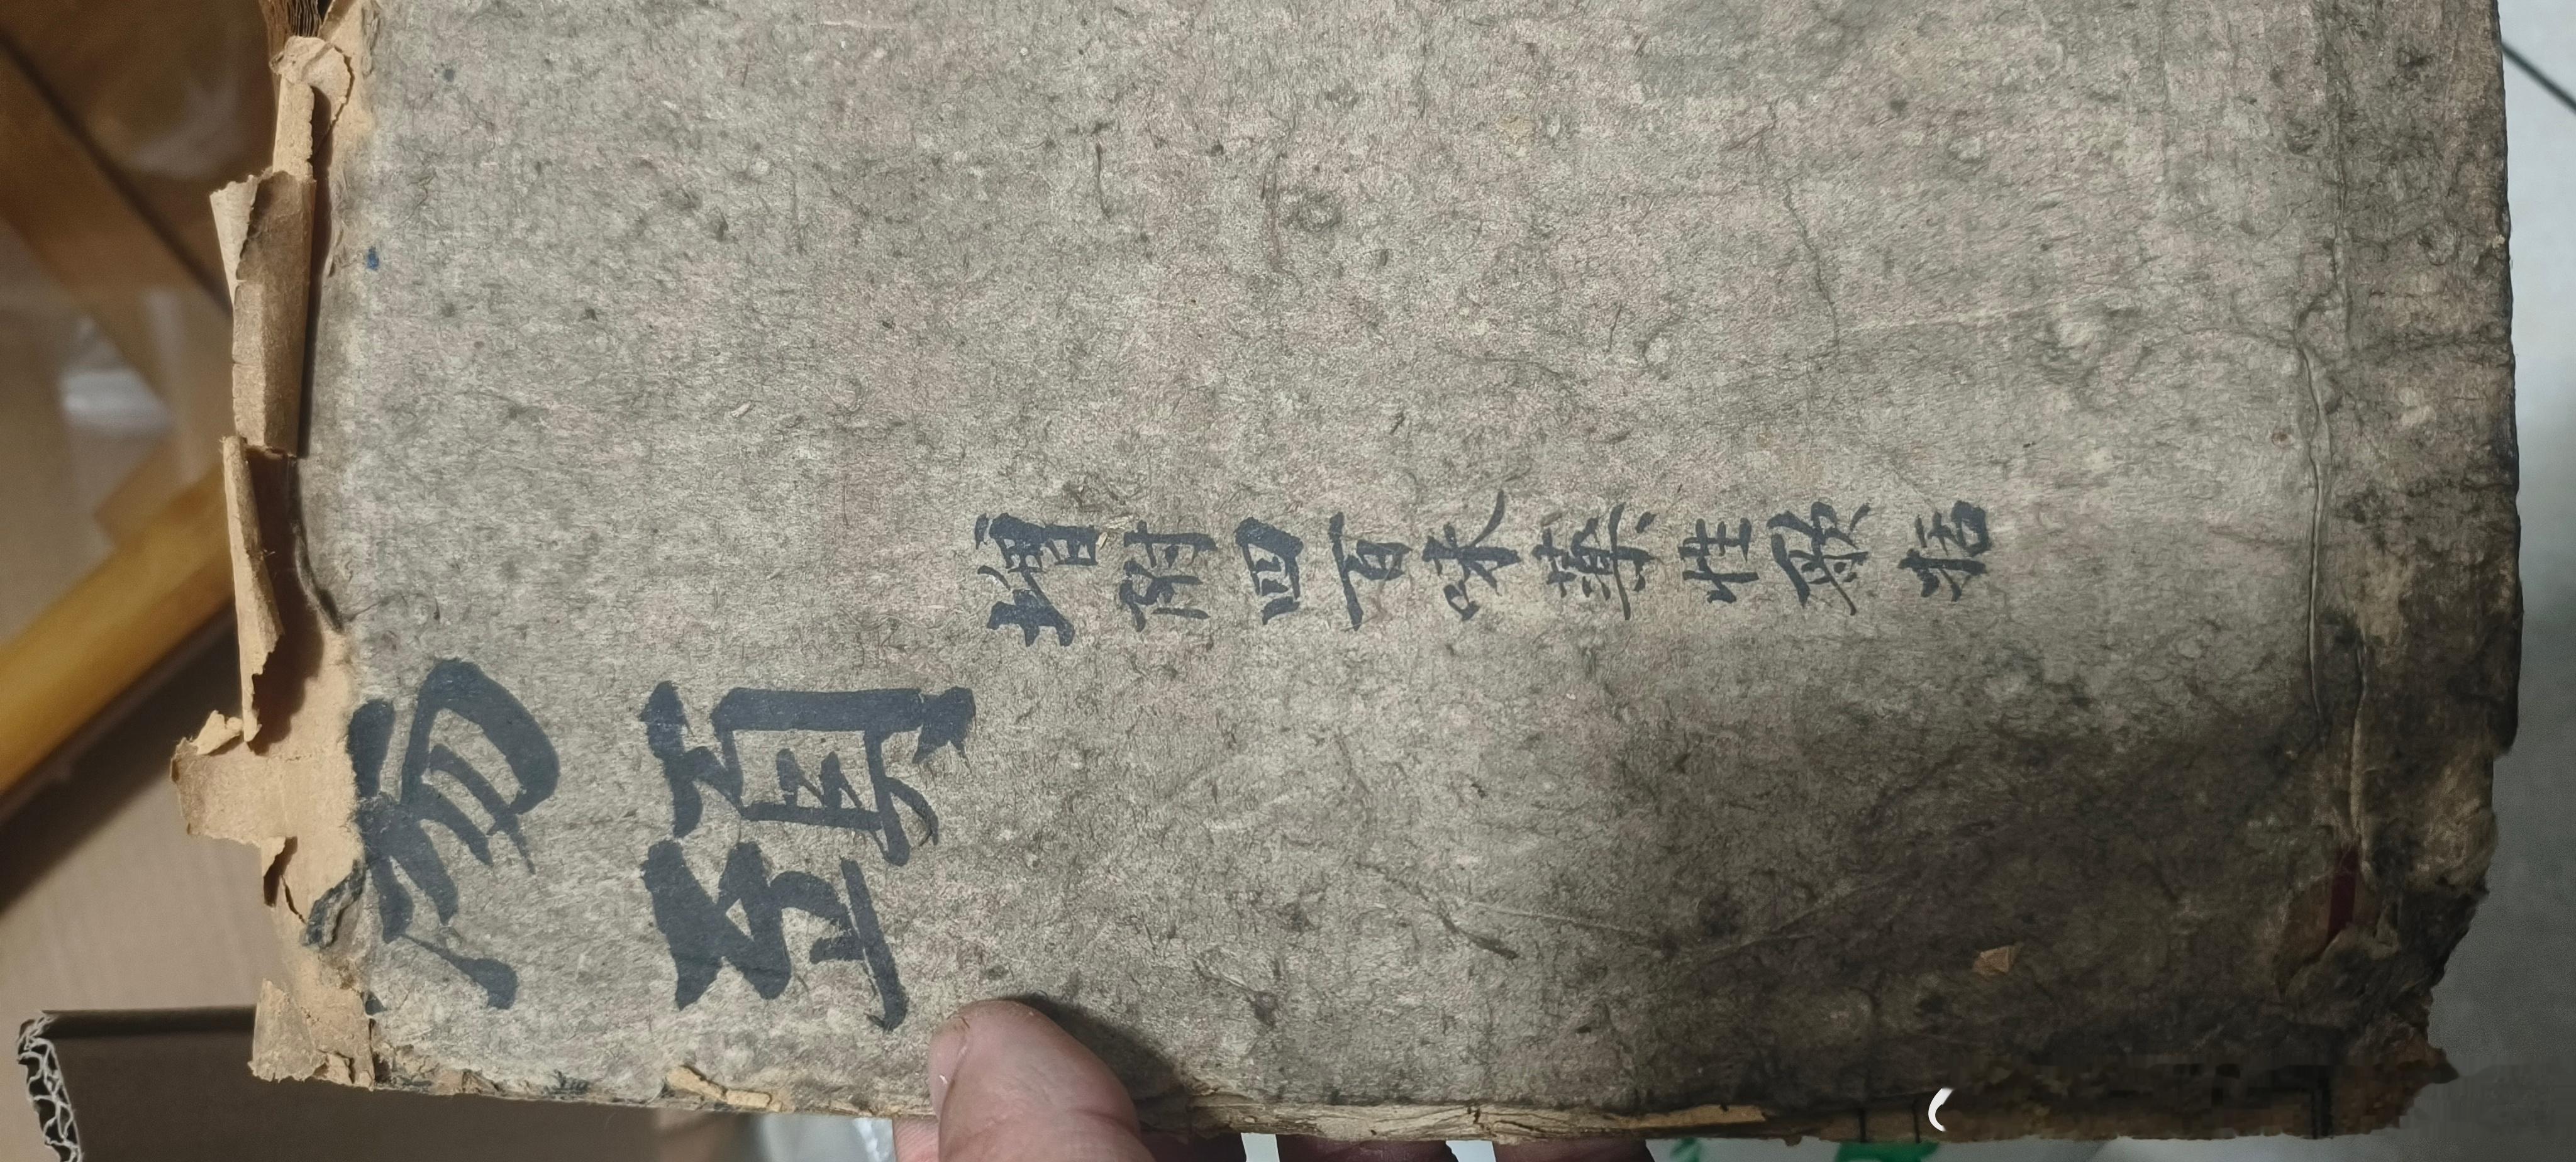 湯頭
增附四百味藥性歌括